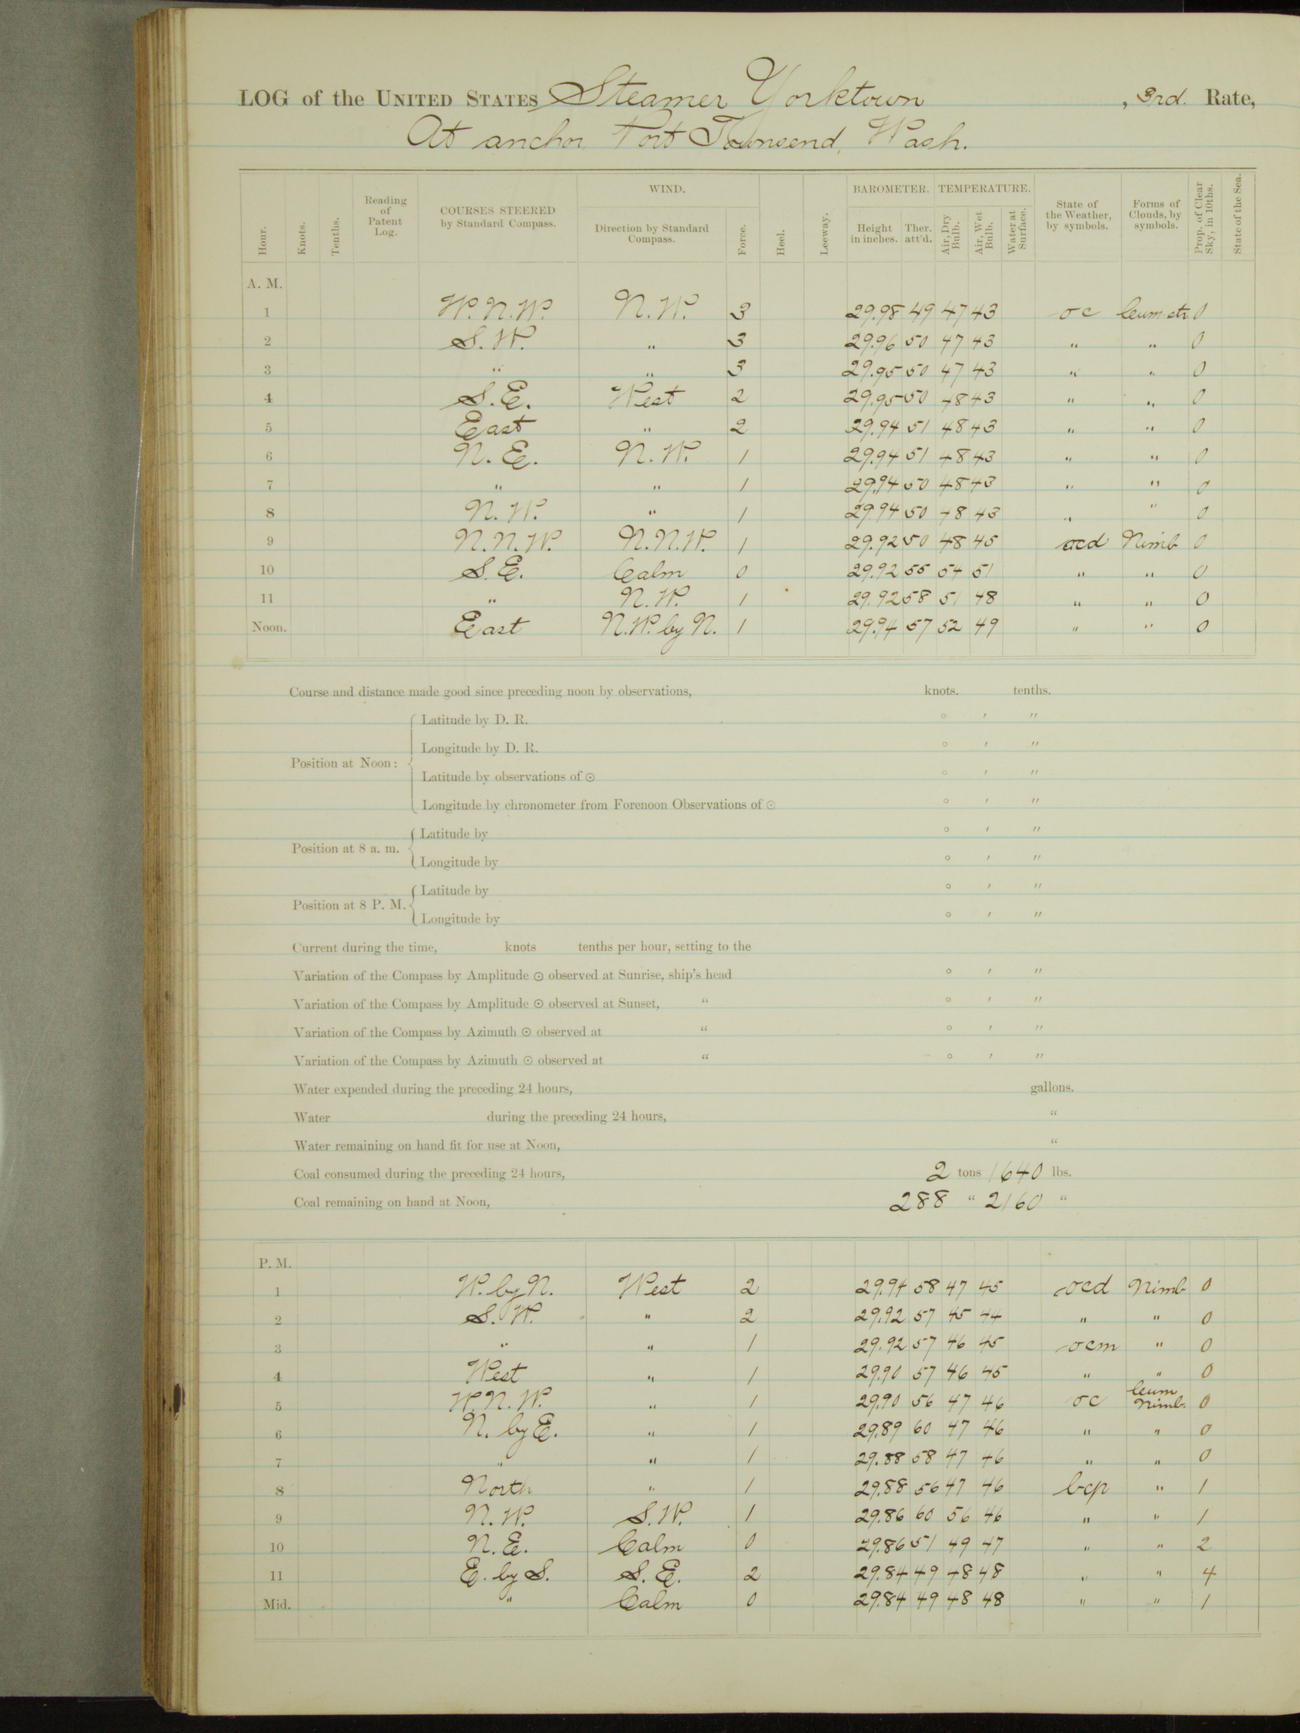 LOG of the UNITED STATES Steamer Yorktown, 3rd. Rate,
At anchor Port Townsend, Wash.
Hour. Knots. Tenths. Reading of Patent Log. COURSES STEERED by Standard Compass. WIND. Direction by Standard Compass. Force. Heel. Leeway. BAROMETER. Height in inches. Ther. att'd. TEMPERATURE. Air, Dry Bulb. Air, Wet Bulb. Water at Surface. State of the Weather, by symbols. Forms of Clouds, by symbols. Prop. of Clear Sky, in 10ths. State of the Sea.
A. M.
1 W.N.W. N.W. 3 29.98 49 47 43 oc Cum str 0
2 S.W. " 3 29.96 50 47 43 " " 0
3 " " 3 29.95 50 47 43 " " 0
4 S.E. West 2 29.95 50 48 43 " " 0
5 East " 2 29.94 51 48 43 " " 0
6 N.E. N.W. 1 29.94 51 48 43 " " 0
7 " " 1 29.94 50 48 43 " " 0
8 N.W. " 1 29.94 50 48 43 " " 0
9 N.N.W. N.N.W. 1 29.92 50 48 45 ocd Nimb 0
10 S.E. Calm 0 29.92 55 54 51 " " 0
11 " N.W. 1 29.92 58 51 48 " " 0
Noon. East N.W. by N. 1 29.94 57 52 49 " " 0
Course and distance made good since preceding noon by observations, knots. tenths.
Position at Noon:
Latitude by D. R. ° ′ ″
Longitude by D. R. ° ′ ″
Latitude by observations of ☉ ° ′ ″
Longitude by chronometer from Forenoon Observations of ☉ ° ′ ″
Position at 8 a. m.
Latitude by ° ′ ″
Longitude by ° ′ ″
Position at 8 P. M.
Latitude by ° ′ ″
Longitude by ° ′ ″
Current during the time, knots tenths per hour, setting to the
Variation of the Compass by Amplitude ☉ observed at Sunrise, ship's head ° ′ ″
Variation of the Compass by Amplitude ☉ observed at Sunset, “ ° ′ ″
Variation of the Compass by Azimuth ☉ observed at “ ° ′ ″
Variation of the Compass by Azimuth ☉ observed at “ ° ′ ″
Water expended during the preceding 24 hours, gallons.
Water during the preceding 24 hours, “
Water remaining on hand fit for use at Noon, “
Coal consumed during the preceding 24 hours, 2 tons 1640 lbs.
Coal remaining on hand at Noon, 288 “ 2160 “
P. M.
1 W. by N. West 2 29.94 58 47 45 ocd Nimb 0
2 S.W. " 2 29.92 57 45 44 " " 0
3 " " 1 29.92 57 46 45 ocm " 0
4 West " 1 29.90 57 46 45 " " 0
5 W.N.W. " 1 29.90 56 47 46 oc Cum Nimb. 0
6 N. by E. " 1 29.89 60 47 46 " " 0
7 " " 1 29.88 58 47 46 " " 0
8 North " 1 29.88 56 47 46 bcp " 1
9 N.W. S.W. 1 29.86 60 56 46 " " 1
10 N.E. Calm 0 29.86 51 49 47 " " 2
11 E. by S. S.E. 2 29.84 49 48 48 " " 4
Mid. " Calm 0 29.84 49 48 48 " " 1